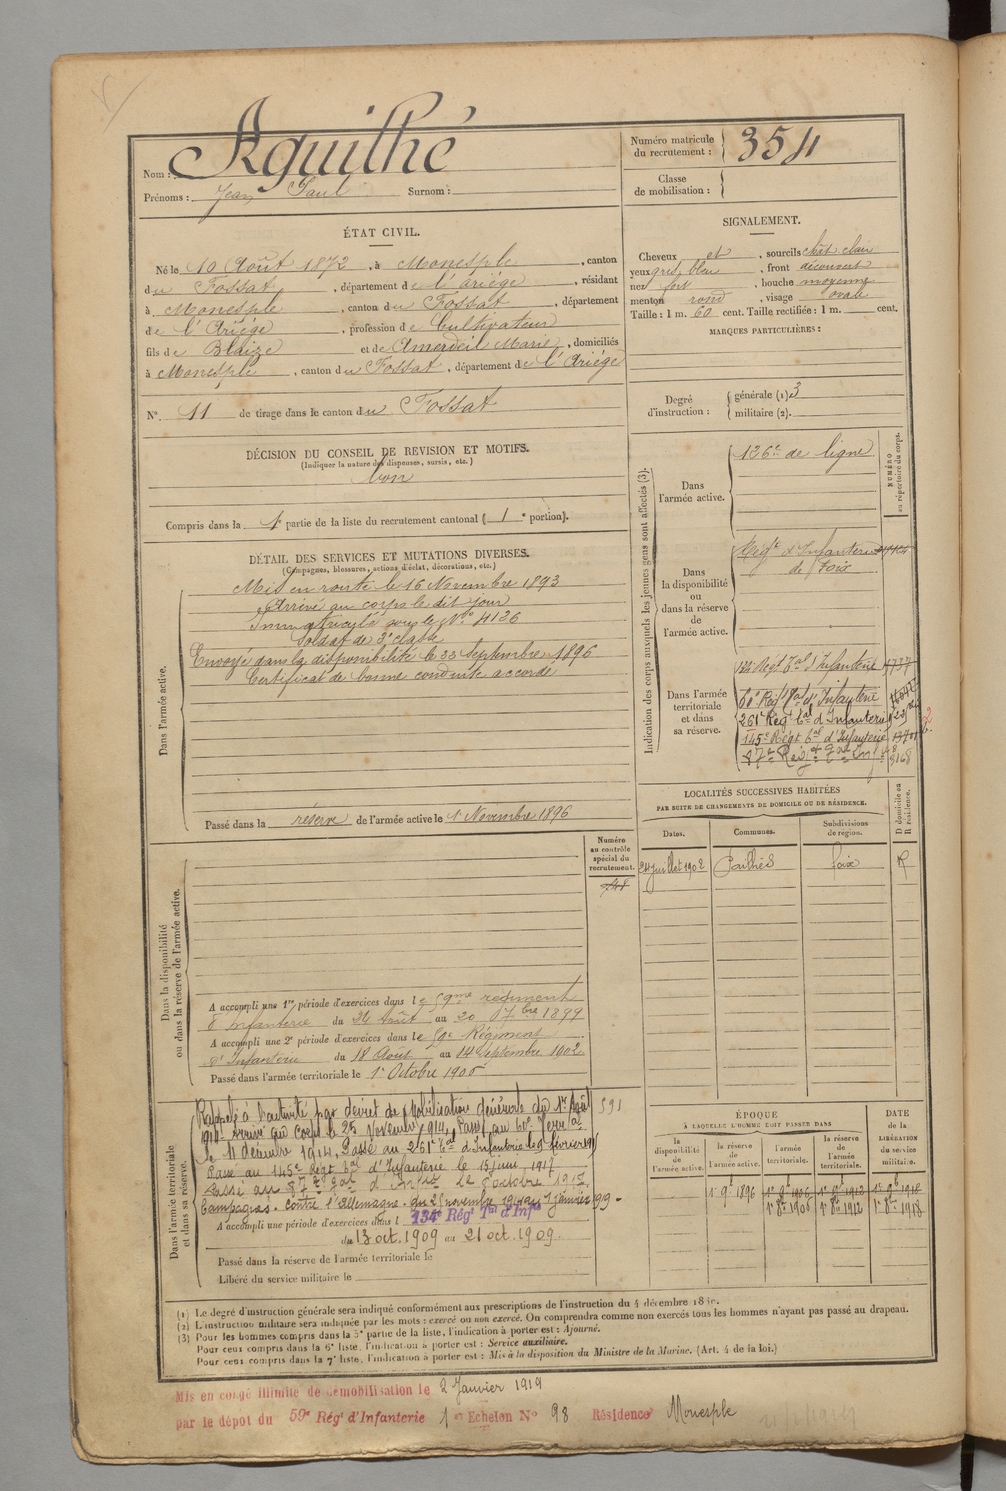 Nom : Aguilhé
Prénoms : Jean Paul Surnom :
Numéro matricule du recrutement : 354
Classe de mobilisation :
ÉTAT CIVIL.
Né le 10 Août 1872, à Monesple, canton
du Fossat, département de l'Ariége, résidant
à Monesple, canton du Fossat, département
de l'Ariége, profession de Cultivateur
fils de Blaize et de Amerdeil Marie, domiciliés
à Monesple, canton du Fossat, département de l'Ariége
N° 11 de tirage dans le canton du Fossat
SIGNALEMENT.
Cheveux et, sourcils chât clair
yeux gris bleu, front découvert
nez fort, bouche moyenne
menton rond, visage ovale
Taille : 1 m. 60 cent. Taille rectifiée : 1 m. cent.
MARQUES PARTICULIÈRES :
Degré d'instruction : générale (1) 3
militaire (2).
DÉCISION DU CONSEIL DE REVISION ET MOTIFS.
(Indiquer la nature des dispenses, sursis, etc.)
bon
Compris dans la 1e partie de la liste du recrutement cantonal (1e portion).
DÉTAIL DES SERVICES ET MUTATIONS DIVERSES.
(Campagnes, blessures, actions d'éclat, décorations, etc.)
Dans l'armée active.
Mis en route le 16 Novembre 1893
Arrivé au corps le dit jour
Immatriculé sous le N° 4126
Soldat de 2e classe
Envoyé dans la disponibilité le 23 Septembre 1896
Certificat de bonne conduite accordé
Passé dans la réserve de l'armée active le 1r Novembre 1896
Indication des corps auxquels les jeunes gens sont affectés (3).
NUMÉRO au répertoire du corps.
Dans l'armée active.
126e de ligne
Dans la disponibilité ou dans la réserve de l'armée active.
Régt d'Infanterie
de Foix
Dans l'armée territoriale et dans sa réserve.
134 Régt Tal d'Infanterie
60e Régt Tal d'Infanterie
261e Régt Tal d'Infanterie
145e Régt Tal d'Infanterie
87e Régt Tal Inf
LOCALITÉS SUCCESSIVES HABITÉES
PAR SUITE DE CHANGEMENTS DE DOMICILE OU DE RÉSIDENCE.
Dates. Communes. Subdivisions de région. D domicile ou R résidence.
24 Juillet 1902 Pailhès Foix R
Numéro au contrôle spécial du recrutement.
Dans la disponibilité ou dans la réserve de l'armée active.
A accompli une 1re période d'exercices dans le 59me régiment
d'Infanterie du 24 Août au 20 7bre 1899
A accompli une 2e période d'exercices dans le 59e Régiment
d'Infanterie du 18 Août au 14 Septembre 1902
Passé dans l'armée territoriale le 1r Octobre 1906
Dans l'armée territoriale et dans sa réserve.
Rappelé à l'activité par décret de Mobilisation Générale du 1er Août
1914. Arrivé au corps le 25 Novembre 1914. Passé au 60e Terral
le 11 décembre 1914. Passé au 261e Tal d'Infanterie le 9 février
Passé au 145e Régt Tal d'Infanterie le 15 juin 1917
Passé au 87e Régt Tal d'Infie le 8 octobre 1917
Campagnes. Contre l'Allemagne. du 25 novembre 1914 au 1 janvier 1919
A accompli une période d'exercices dans le 134e Régt Tal d'Infie
du 13 oct. 1909 au 21 oct. 1909.
Passé dans la réserve de l'armée territoriale le
Libéré du service militaire le
591
ÉPOQUE
À LAQUELLE L'HOMME DOIT PASSER DANS
la disponibilité de l'armée active. la réserve de l'armée active. l'armée territoriale. la réserve de l'armée territoriale.
DATE de la LIBÉRATION du service militaire.
1r 9b 1896 1r 9b 1906 1r 9b 1912 1r 9b 1918
1r 8bre 1906 1r 8bre 1912 1r 8bre 1918
(1) Le degré d'instruction générale sera indiqué conformément aux prescriptions de l'instruction du 4 décembre
(2) L'instruction militaire sera indiquée par les mots : exercé ou non exercé. On comprendra comme non exercés tous les hommes n'ayant pas passé au drapeau.
(3) Pour les hommes compris dans la 5e partie de la liste, l'indication à porter est : Ajourné.
Pour ceux compris dans la 6e liste, l'indication à porter est : Service auxiliaire.
Pour ceux compris dans la 7e liste, l'indication à porter est : Mis à la disposition du Ministre de la Marine. (Art. 4 de la loi.)
Mis en congé illimité de démobilisation le 2 Janvier 1919
par le dépôt du 59e Régt d'Infanterie 1er Echelon N° 98 Résidence Monesple